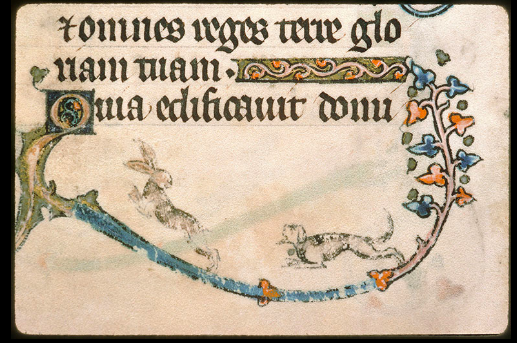 ⁊ omnes reges terre glo
riam tuam.
Qma edificauit domu